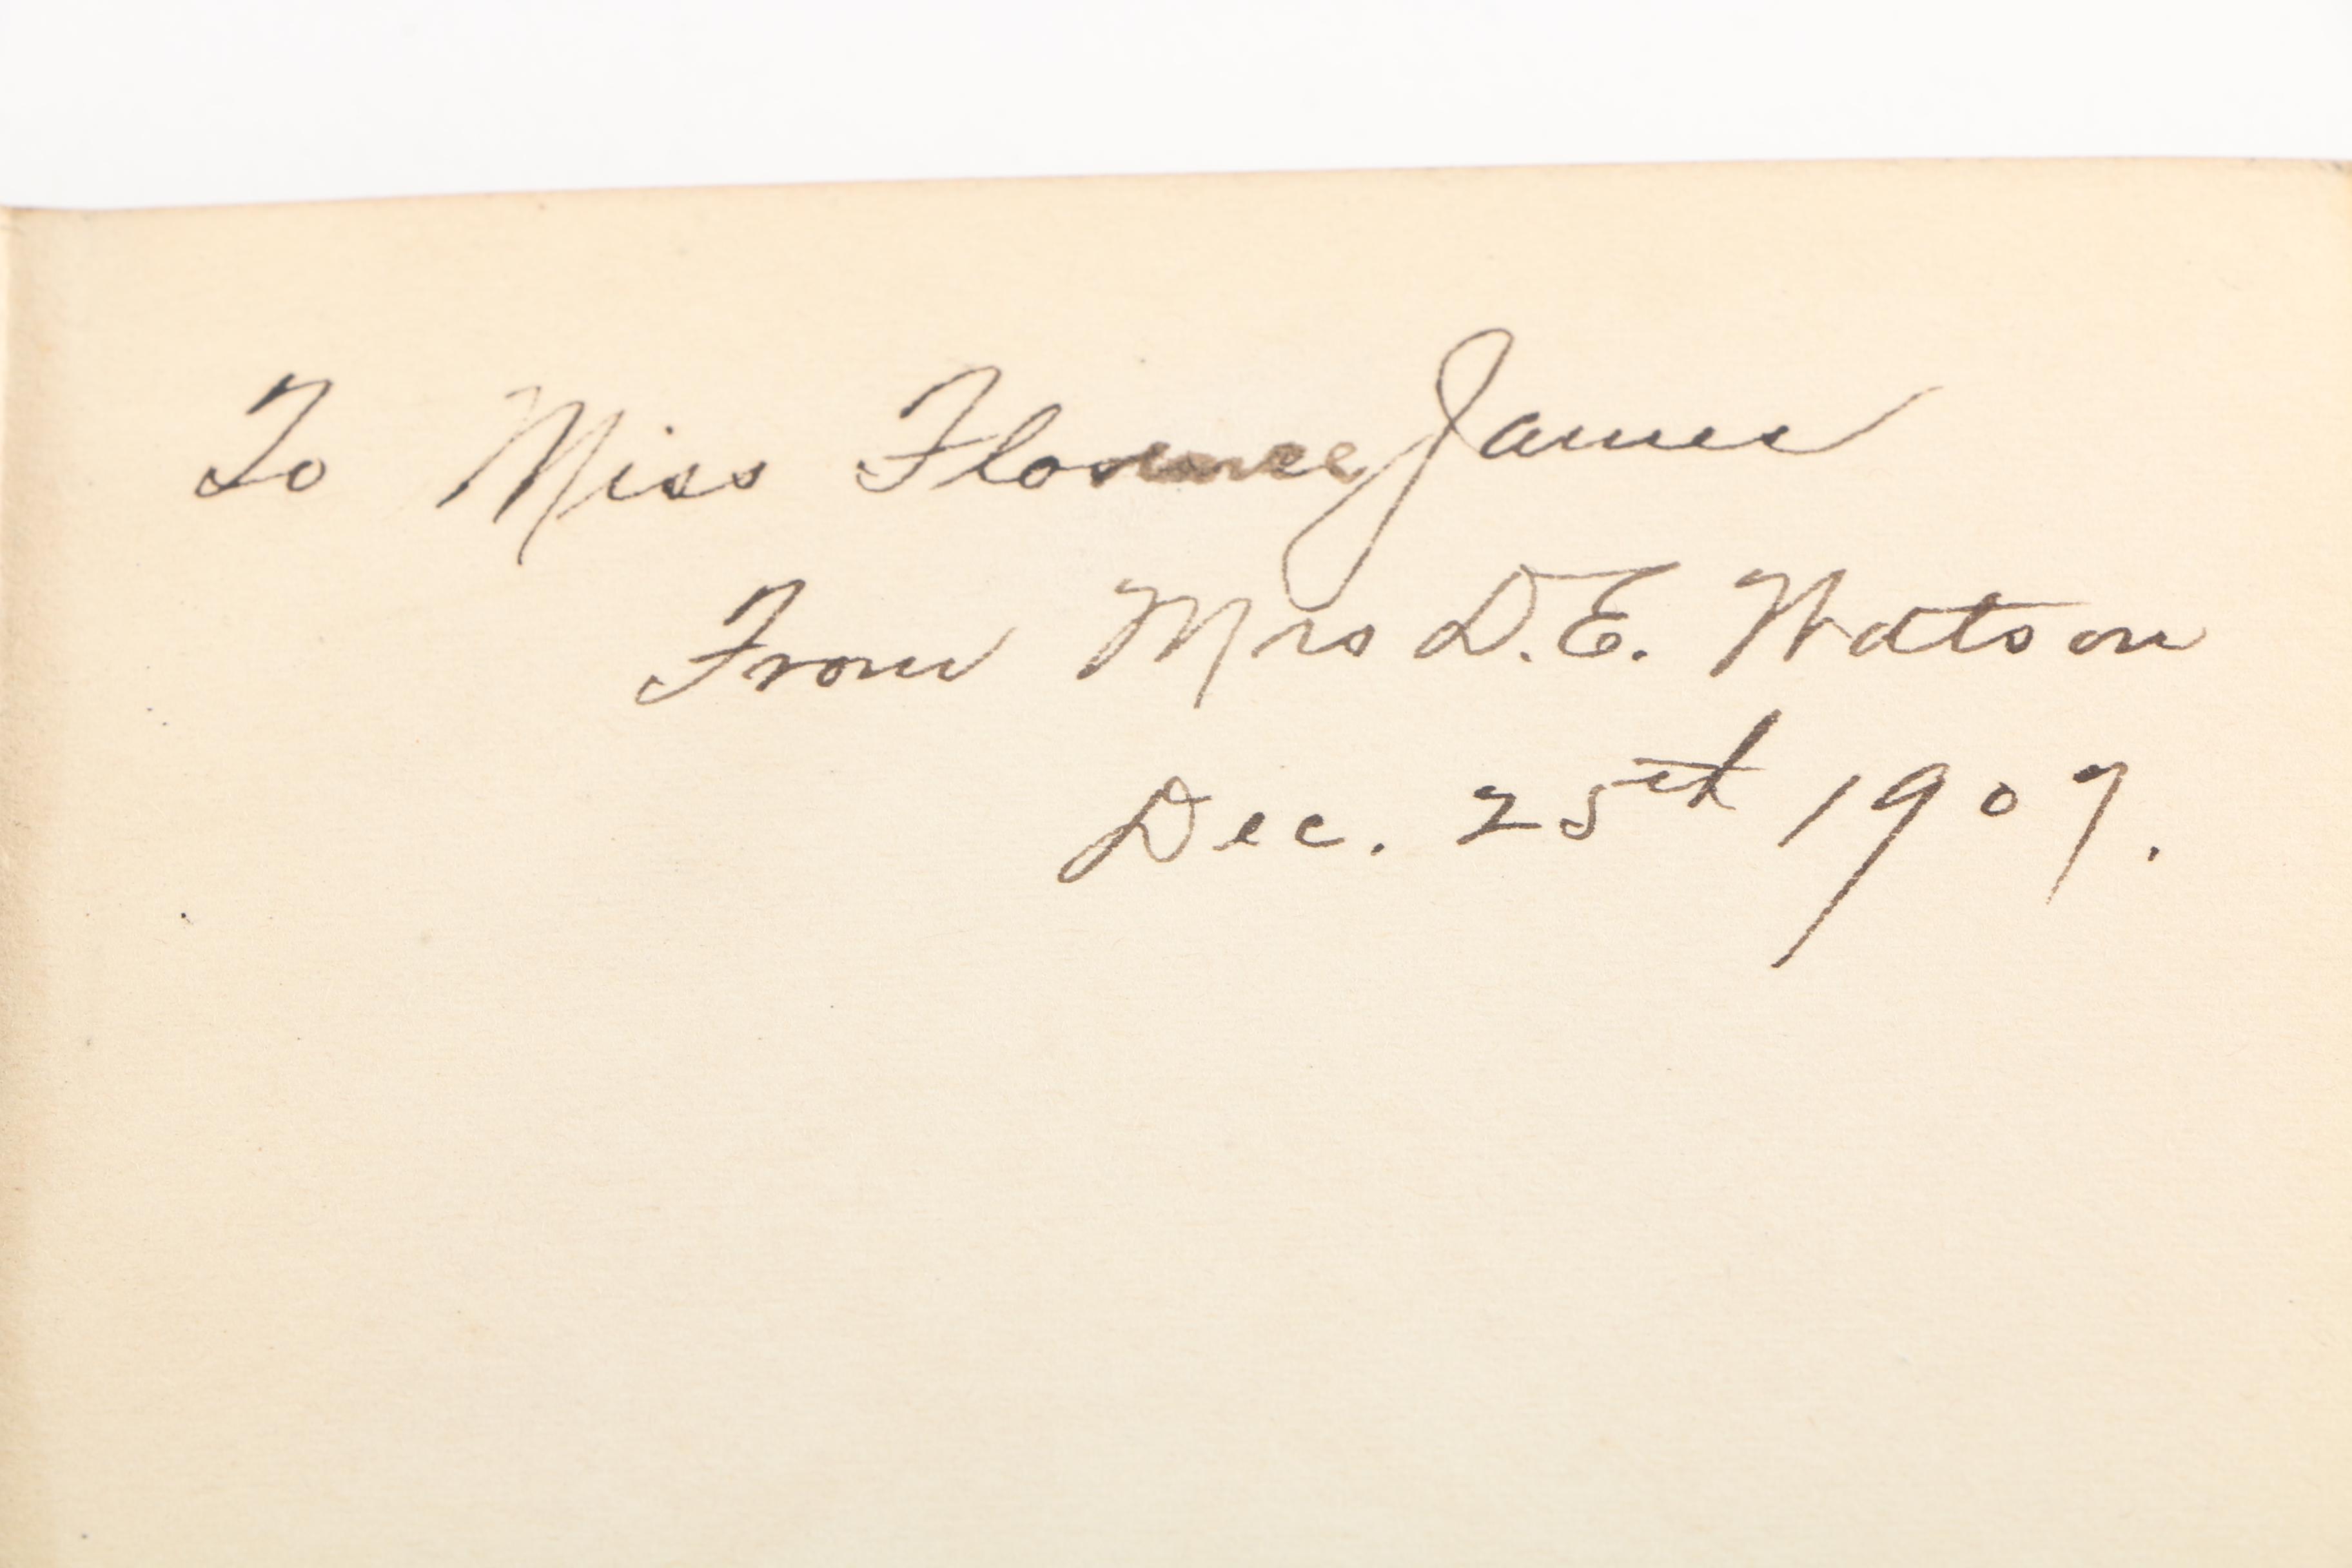 To Miss Florence James
From Mrs D.E. Watson
Dec. 25th 1907.